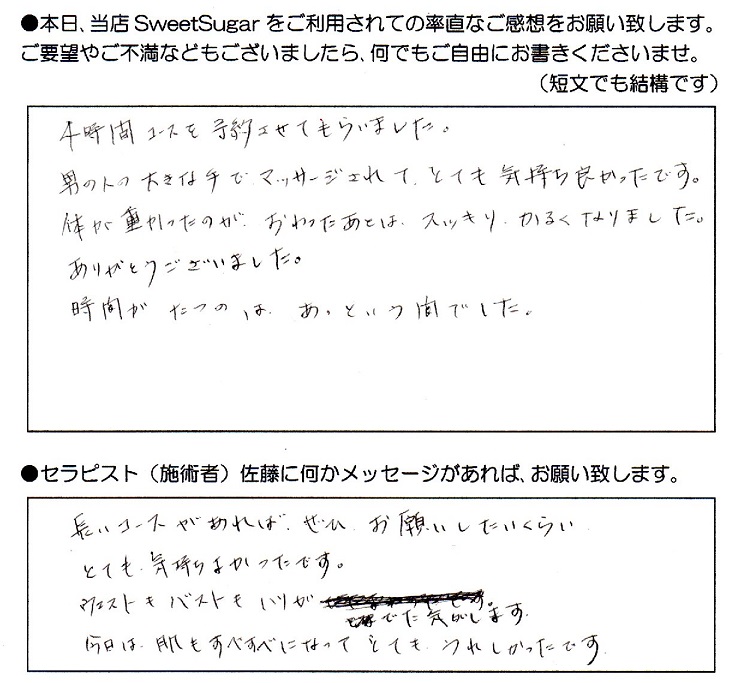 ●本日、当店SweetSugarをご利用されての率直なご感想をお願い致します。
ご要望やご不満などもございましたら、何でもご自由にお書きくださいませ。
（短文でも結構です）
4時間コースを予約させてもらいました。
男の人の大きな手で、マッサージされて、とても気持ち良かったです。
体が重かったのが、おわったあとは、スッキリ、かるくなりました。
ありがとうございました。
時間がたつのは、あっという間でした。
●セラピスト（施術者）佐藤に何かメッセージがあれば、お願い致します。
長いコースがあれば、ぜひ、お願いしたいくらい
とても、気持ちよかったです。
ウエストもバストもハリが
でた気がします。
今日は、肌もすべすべになってとても、うれしかったです